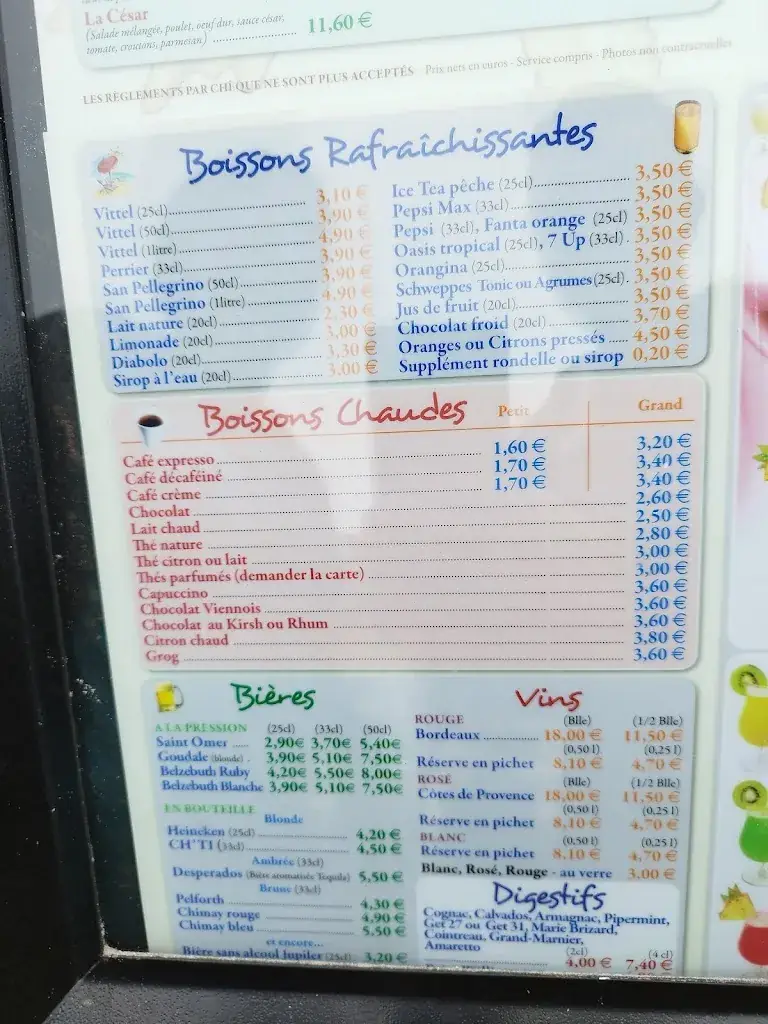 La César
(Salade mélangée, poulet, oeuf dur, sauce césar,
tomate, croutons, parmesan) 11,60 €
LES RÈGLEMENTS PAR CHÈQUE NE SONT PLUS ACCEPTÉS Prix nets en euros - Service compris - Photos non contractuelles
Boissons Rafraîchissantes
Vittel (25cl) 3,10 €
Vittel (50cl) 3,90 €
Vittel (1litre) 4,90 €
Perrier (33cl) 3,90 €
San Pellegrino (50cl) 3,90 €
San Pellegrino (1litre) 4,90 €
Lait nature (20cl) 2,30 €
Limonade (20cl) 3,00 €
Diabolo (20cl) 3,30 €
Sirop à l'eau (20cl) 3,00 €
Ice Tea pêche (25cl) 3,50 €
Pepsi Max (33cl) 3,50 €
Pepsi (33cl), Fanta orange (25cl) 3,50 €
Oasis tropical (25cl), 7 Up (33cl) 3,50 €
Orangina (25cl) 3,50 €
Schweppes Tonic ou Agrumes (25cl) 3,50 €
Jus de fruit (20cl) 3,50 €
Chocolat froid (20cl) 3,70 €
Oranges ou Citrons pressés 4,50 €
Supplément rondelle ou sirop 0,20 €
Boissons Chaudes Petit Grand
Café expresso 1,60 € 3,20 €
Café décaféiné 1,70 € 3,40 €
Café crème 1,70 € 3,40 €
Chocolat 2,60 €
Lait chaud 2,50 €
Thé nature 2,80 €
Thé citron ou lait 3,00 €
Thés parfumés (demander la carte) 3,00 €
Capuccino 3,60 €
Chocolat Viennois 3,60 €
Chocolat au Kirsh ou Rhum 3,60 €
Citron chaud 3,80 €
Grog 3,60 €
Bières
A LA PRESSION (25cl) (33cl) (50cl)
Saint Omer 2,90€ 3,70€ 5,40€
Goudale (blonde) 3,90€ 5,10€ 7,50€
Belzebuth Ruby 4,20€ 5,50€ 8,00€
Belzebuth Blanche 3,90€ 5,10€ 7,50€
EN BOUTEILLE
Blonde
Heineken (25cl) 4,20 €
CH'TI (33cl) 4,50 €
Ambrée (33cl)
Desperados (Bière aromatisée Tequila) 5,50 €
Brune (33cl)
Pelforth 4,30 €
Chimay rouge 4,90 €
Chimay bleu 5,50 €
et encore...
Bière sans alcool Jupiler (25cl) 3,20 €
Vins
ROUGE (Blle) (1/2 Blle)
Bordeaux 18,00 € 11,50 €
(0,50 l) (0,25 l)
Réserve en pichet 8,10 € 4,70 €
ROSÉ (Blle) (1/2 Blle)
Côtes de Provence 18,00 € 11,50 €
(0,50 l) (0,25 l)
Réserve en pichet 8,10 € 4,70 €
BLANC (0,50 l) (0,25 l)
Réserve en pichet 8,10 € 4,70 €
Blanc, Rosé, Rouge - au verre 3,00 €
Digestifs
Cognac, Calvados, Armagnac, Pipermint,
Get 27 ou Get 31, Marie Brizard,
Cointreau, Grand-Marnier,
Amaretto (2cl) (4 cl)
4,00 € 7,40 €